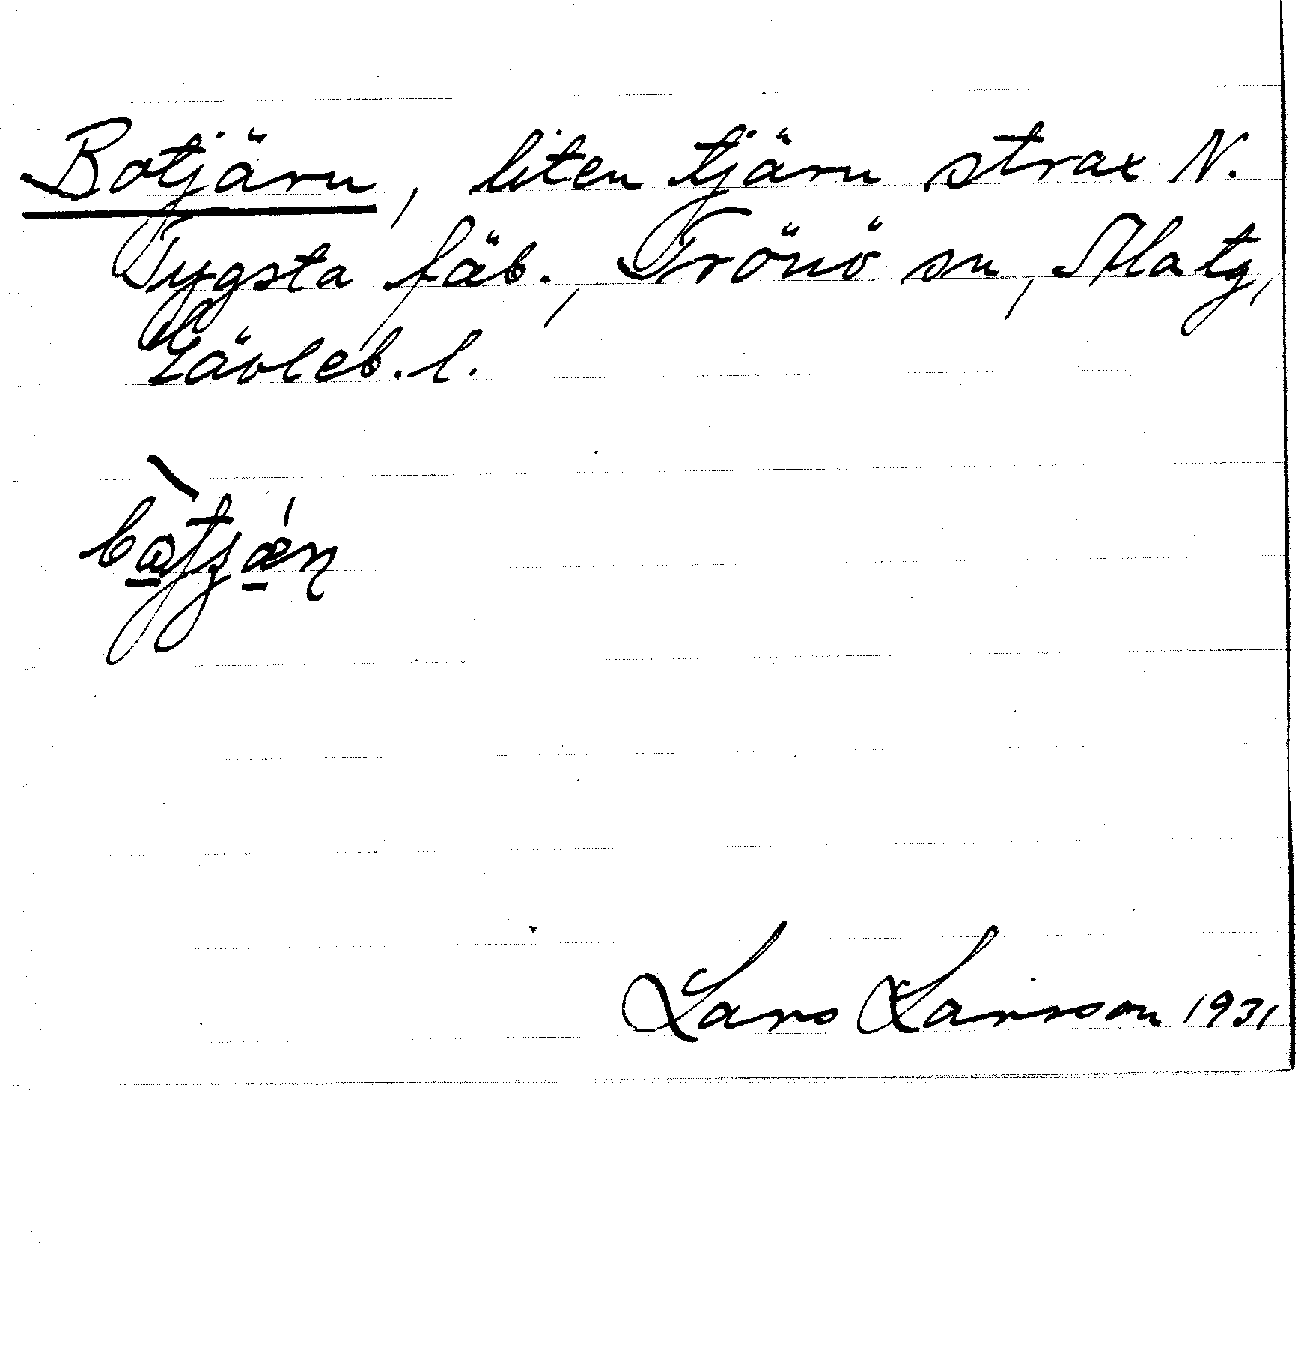 Botjärn, liten tjärn strax N.
Tygsta fäb., Trönö sn, Ala tg,
Gävleb. l.
Lars Larsson 1931